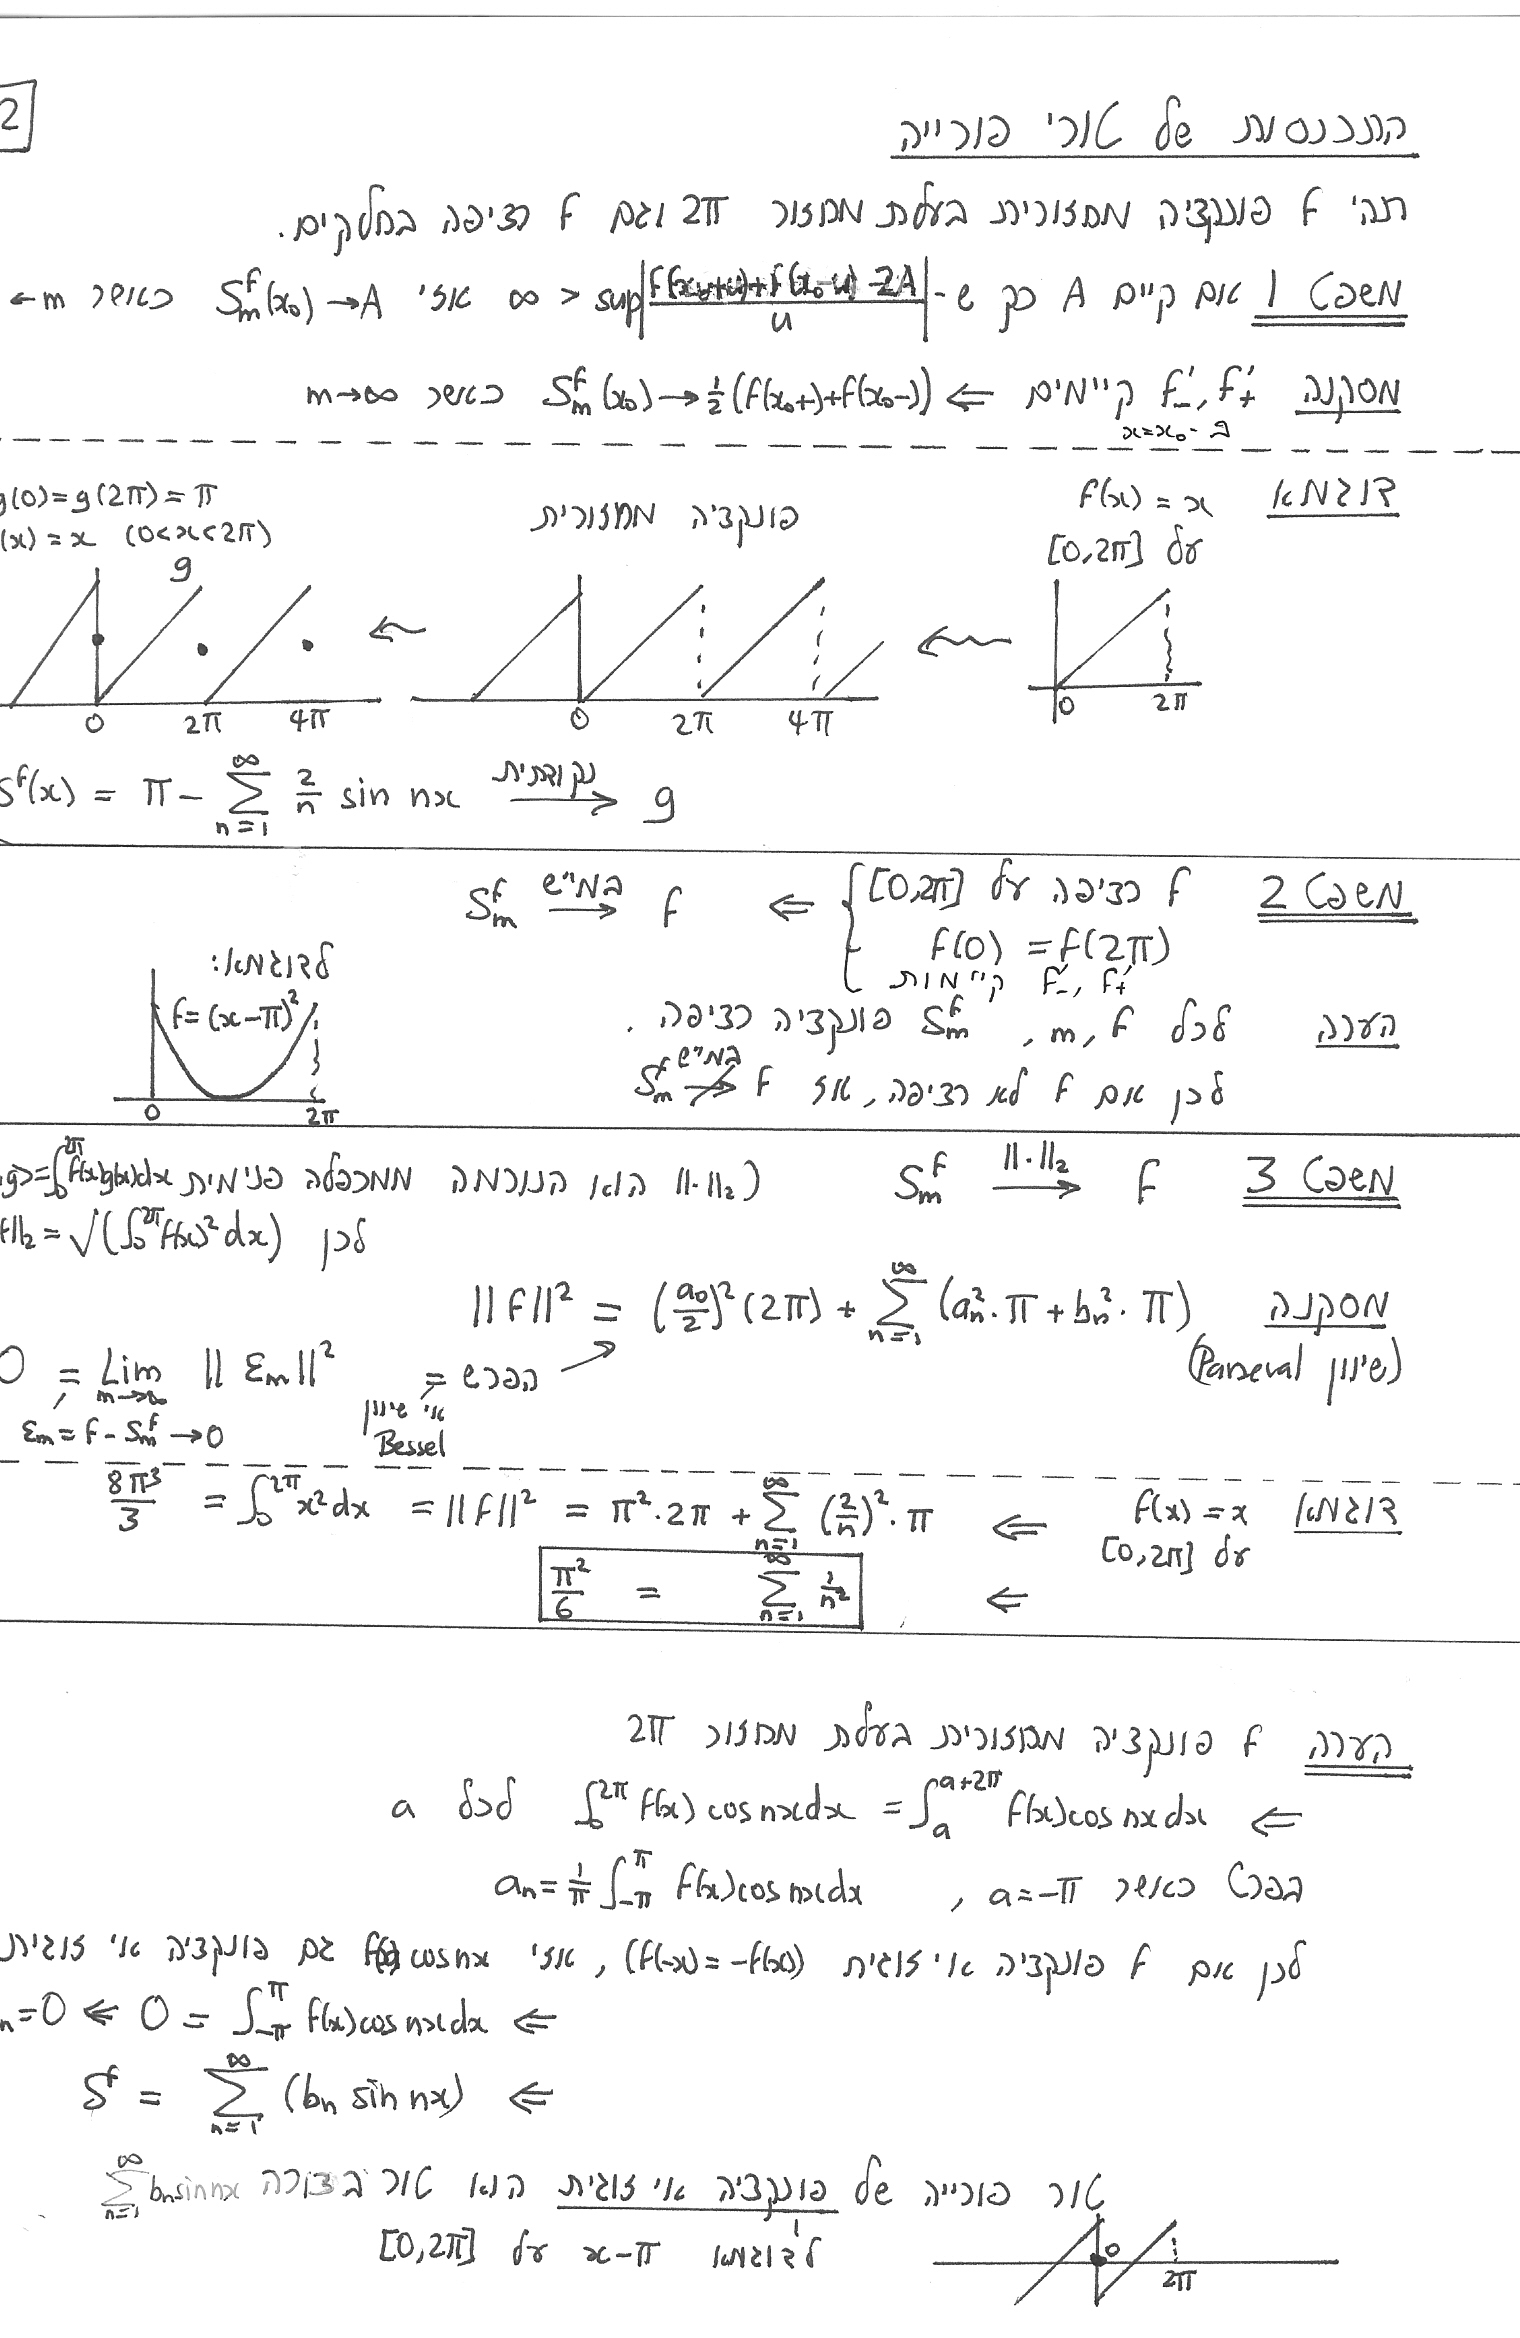 2
התכנסות של טורי פורייה
תהי f פונקציה מחזורית בעלת מחזור 2π וגם f רציפה בחלקים.
משפט 1 אם קיים A כך ש- sup|(f(x₀+u)+f(x₀-u)-2A)/u| < ∞ אזי S_m^f(x₀)→A כאשר m→
מסקנה f'₋, f'₊ קיימים ⇐ S_m^f(x₀)→½(f(x₀+)+f(x₀-)) כאשר m→∞
ב- x=x₀
דוגמא f(x)=x
על [0,2π]
פונקציה מחזורית
g(0)=g(2π)=π
(x)=x (0<x<2π)
g
0 2π 4π
0 2π 4π
0 2π
S^f(x) = π - Σ_{n=1}^∞ 2/n sin nx נקודתית → g
משפט 2 { f רציפה על [0,2π] ⇐ S_m^f במ"ש → f
f(0)=f(2π)
f'₋, f'₊ קיימות
לדוגמא:
f=(x-π)²
0 2π
הערה לכל f, m, S_m^f פונקציה רציפה.
לכן אם f לא רציפה, אז S_m^f במ"ש ↛ f
משפט 3 S_m^f ‖·‖₂ → f (‖·‖₂ הוא הנורמה ממכפלה פנימית g>=∫₀^{2π} f(x)g(x)dx
לכן f‖₂=√(∫₀^{2π} f(x)² dx)
מסקנה ‖f‖² = (a₀/2)²(2π) + Σ_{n=1}^∞ (a_n²·π + b_n²·π)
(שיוון Parseval)
0 = Lim_{m→∞} ‖ε_m‖² = הפרש
ε_m = f - S_m^f → 0
אי שיוון
Bessel
דוגמא f(x)=x ⇐ 8π³/3 = ∫₀^{2π} x²dx = ‖f‖² = π²·2π + Σ_{n=1}^∞ (2/n)²·π
על [0,2π]
⇐ π²/6 = Σ_{n=1}^∞ 1/n²
הערה f פונקציה מחזורית בעלת מחזור 2π
⇐ ∫₀^{2π} f(x)cos nx dx = ∫_a^{a+2π} f(x)cos nx dx לכל a
בפרט כאשר a=-π, a_n = 1/π ∫_{-π}^{π} f(x)cos nx dx
לכן אם f פונקציה אי זוגית (f(-x)=-f(x)), אזי f(x)cos nx גם פונקציה אי זוגית
n=0 ⇐ 0 = ∫_{-π}^{π} f(x)cos nx dx ⇐
S^f = Σ_{n=1}^∞ (b_n sin nx) ⇐
טור פורייה של פונקציה אי זוגית הוא טור בצורה Σ_{n=1}^∞ b_n sin nx
לדוגמא x-π על [0,2π]
0 2π